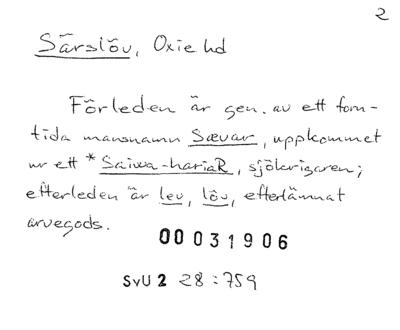 2
Särslöv, Oxie hd
Förleden är gen. av ett forn-
tida mansnamn Sævar, uppkommet
ur ett *Saiwa-hariaR, sjökrigaren;
efterleden är lev, löv, efterlämnat
arvegods.
00031906
SvU 2 28:759